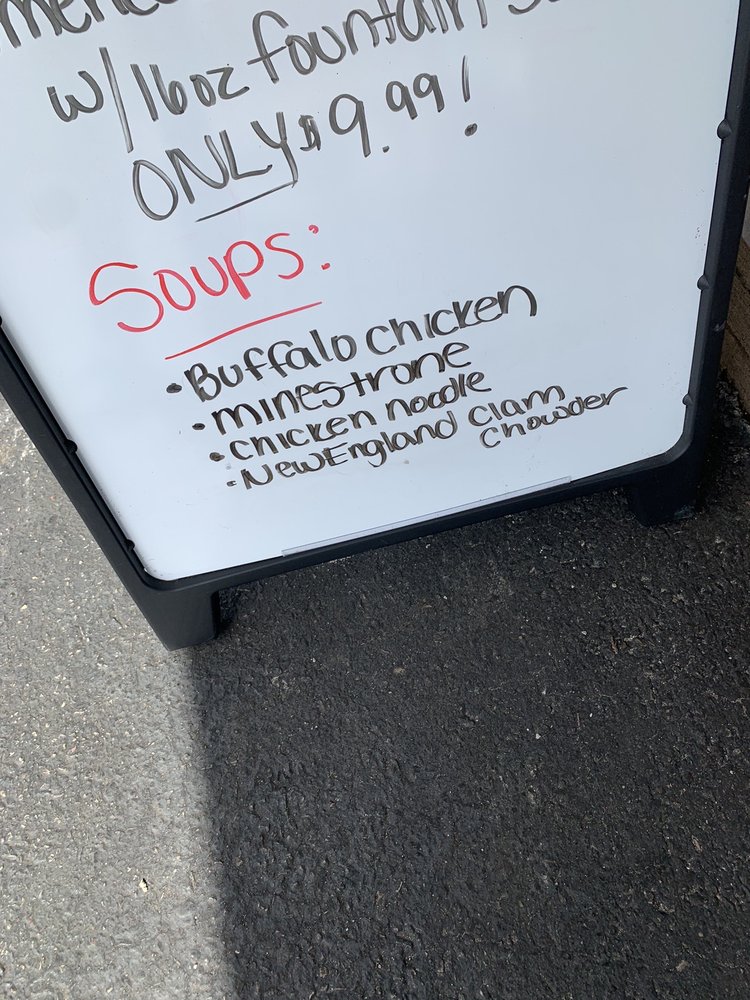 w/16oz fountain
ONLY $9.99!
Soups:
• Buffalo chicken
• minestrone
• chicken noodle
• New England Clam
Chowder